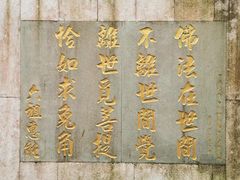 佛法在世間
不離世間覺
離世覓菩提
恰如求兔角
六祖惠能